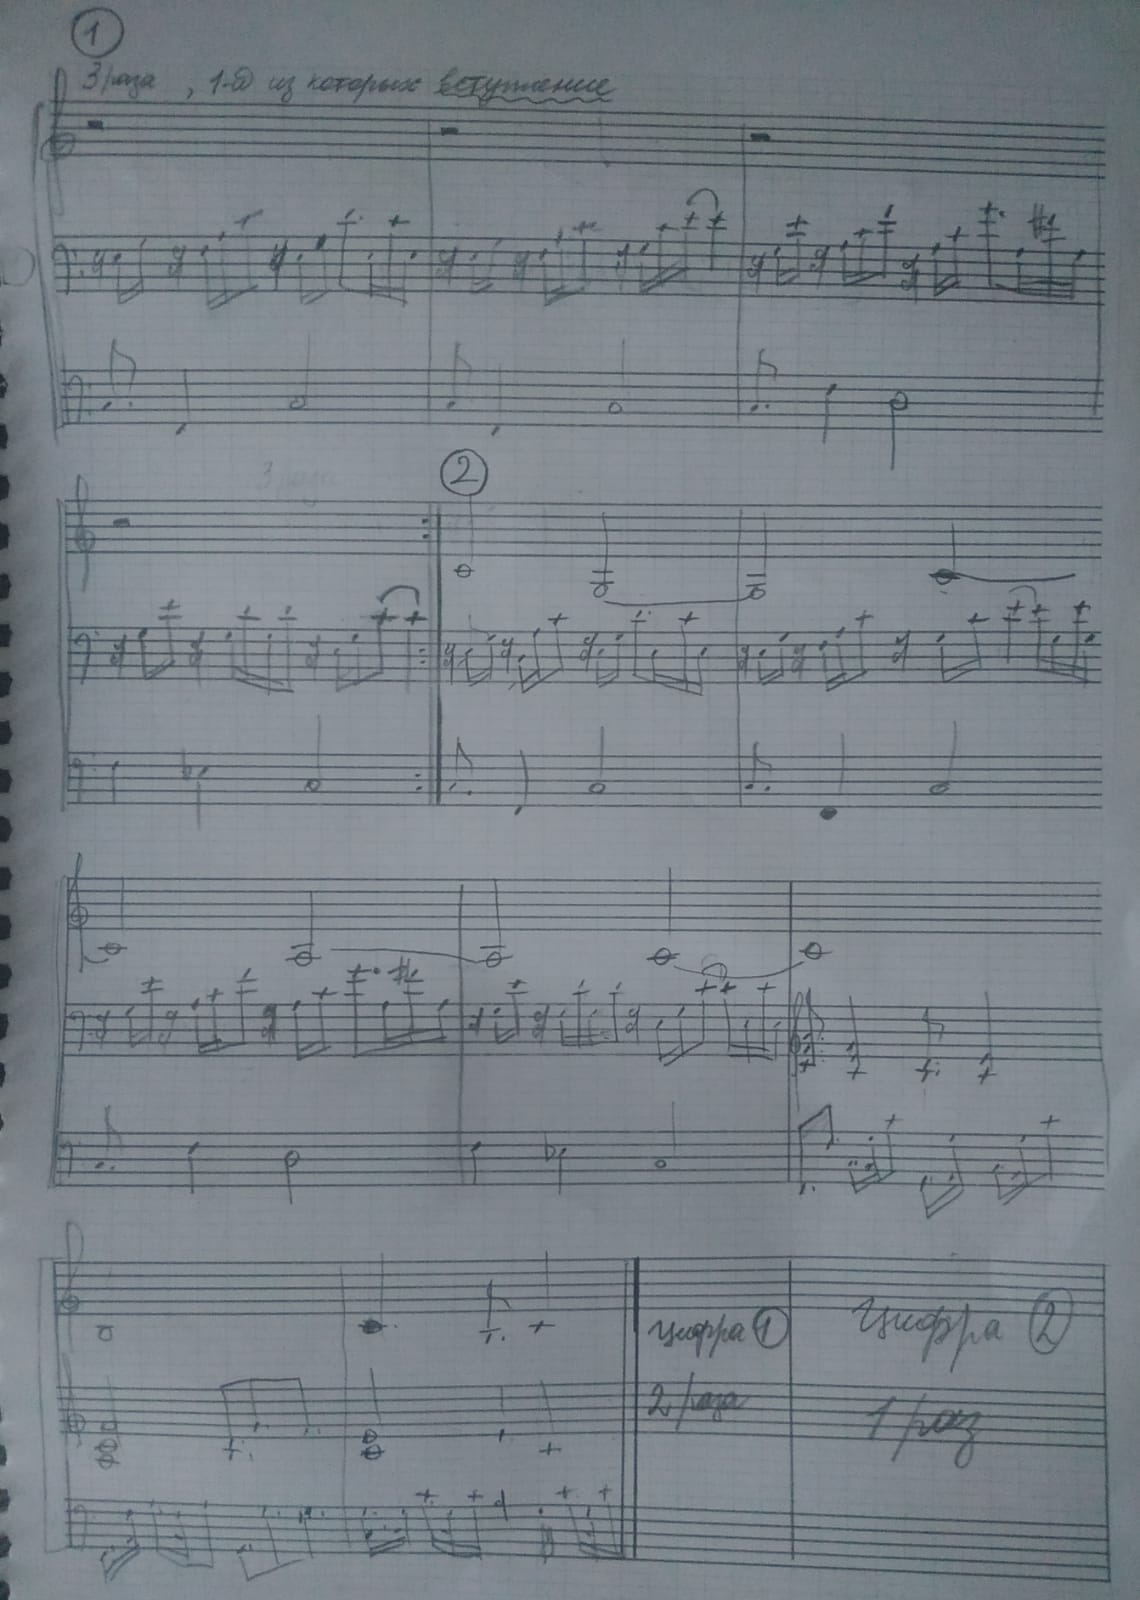 1
3 раза, 1-й из которых вступление
3 раза
2
цифра 1
2 раза
цифра 2
1 раз